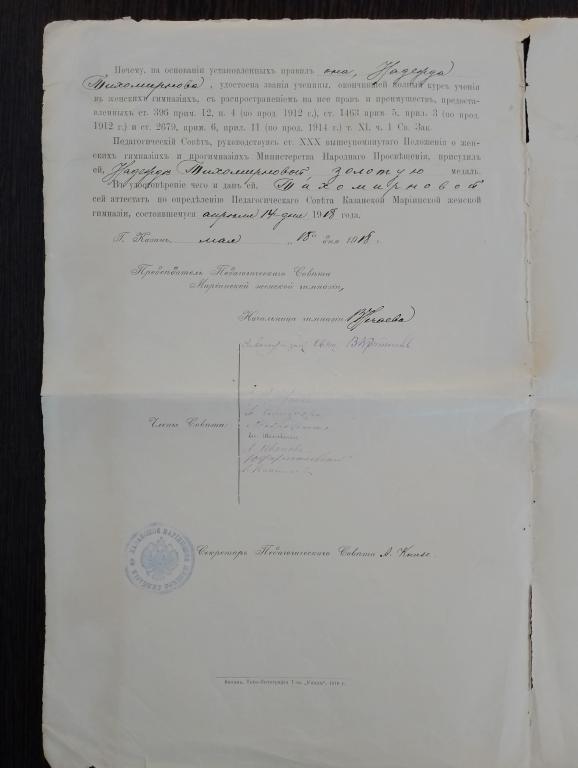 Почему, на основаніи установленныхъ правилъ она, Надежда
Тихомирнова, удостоена званія ученицы, окончившей полный курсъ ученія
въ женскихъ гимназіяхъ, съ распространеніемъ на нее правъ и преимуществъ, предоста-
вленныхъ ст. 396 прим. 12, п. 4 (по прод. 1912 г.), ст. 1463 прим. 5, прил. 3 (по прод.
1912 г.) и ст. 2679, прим. 6, прил. 11 (по прод. 1914 г.) т. XI, ч. 1 Св. Зак.
Педагогическій Совѣтъ, руководствуясь ст. XXX вышеупомянутаго Положенія о жен-
скихъ гимназіяхъ и прогимназіяхъ Министерства Народнаго Просвѣщенія, присудилъ
ей, Надеждѣ Тихомирновой, золотую медаль.
Въ удостовѣреніе чего и данъ ей, Тихомирновой
сей аттестатъ по опредѣленію Педагогическаго Совѣта Казанской Маріинской женской
гимназіи, состоявшемуся апрѣля 14 дня 1918 года.
Г. Казань, мая „18" дня 1918 г.
Предсѣдатель Педагогическаго Совѣта
Маріинской женской гимназіи,
Начальница гимназіи
Члены Совѣта:
Секретарь Педагогическаго Совѣта А. Князе
Казань, Типо-Литографія Т-ва „Умидъ", 1916 г.